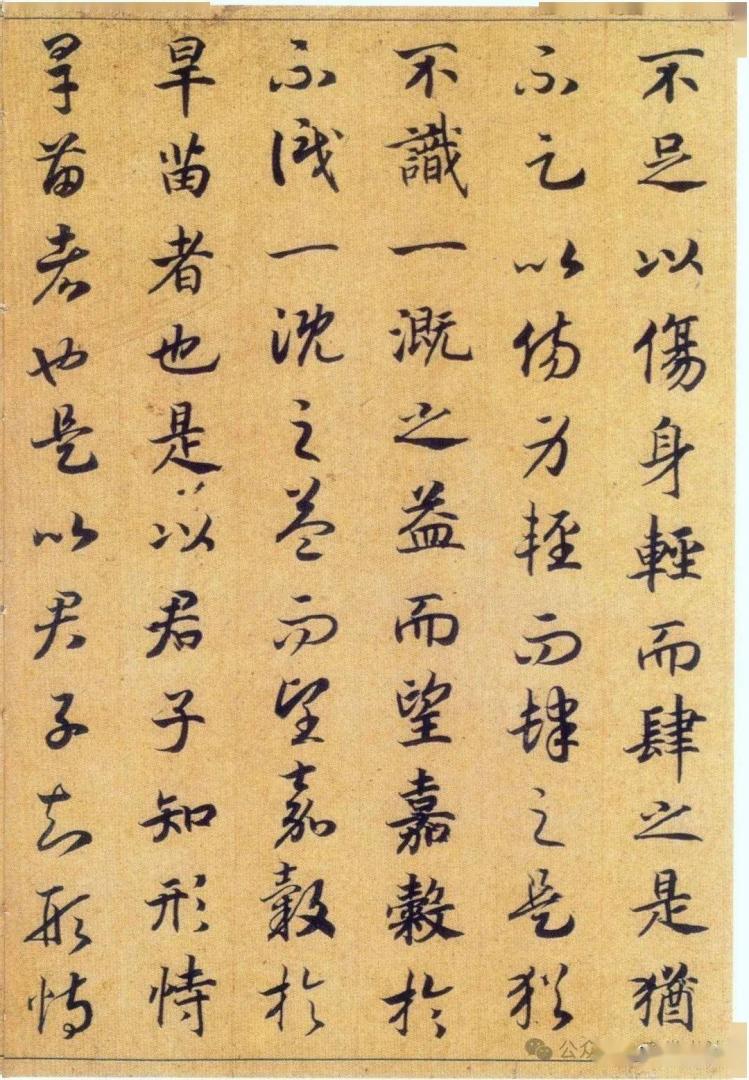 不足以傷身輕而肆之是猶
不足以傷身輕而肆之是猶
不識一溉之益而望嘉穀於
不識一溉之益而望嘉穀於
旱苗者也是以君子知形恃
旱苗者也是以君子知形恃
公众